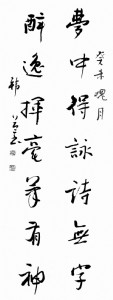 癸未槐月
夢中得詠詩無字
醉逸揮毫筆有神